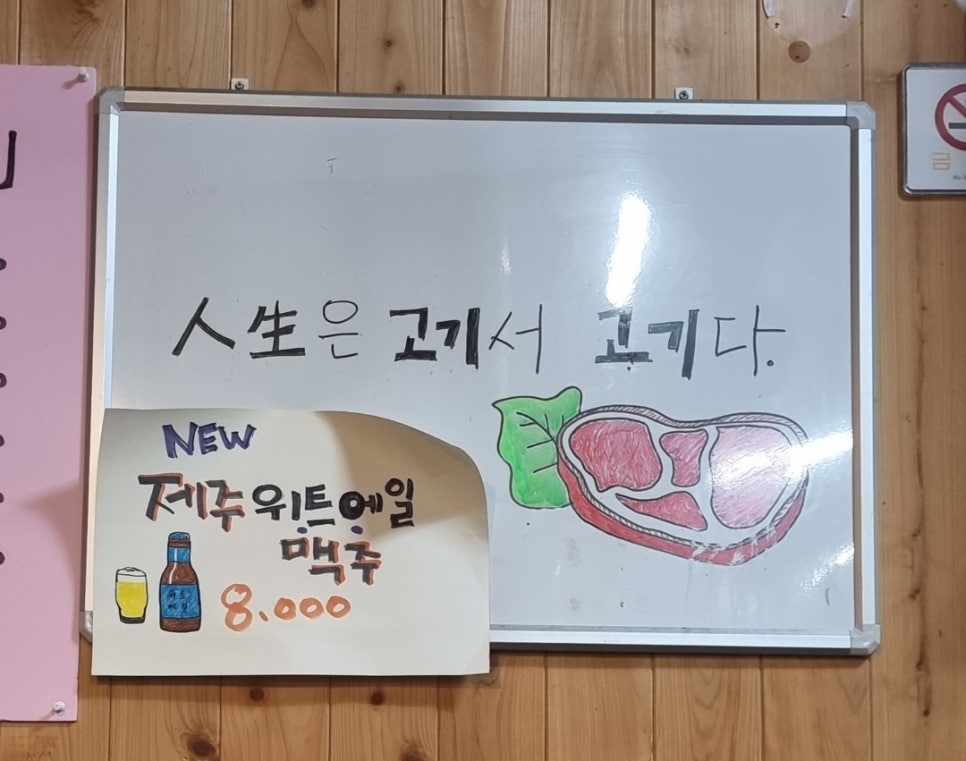 人生은 고기서 고기다.
NEW
제주 위트 에일
맥주
8.000
금